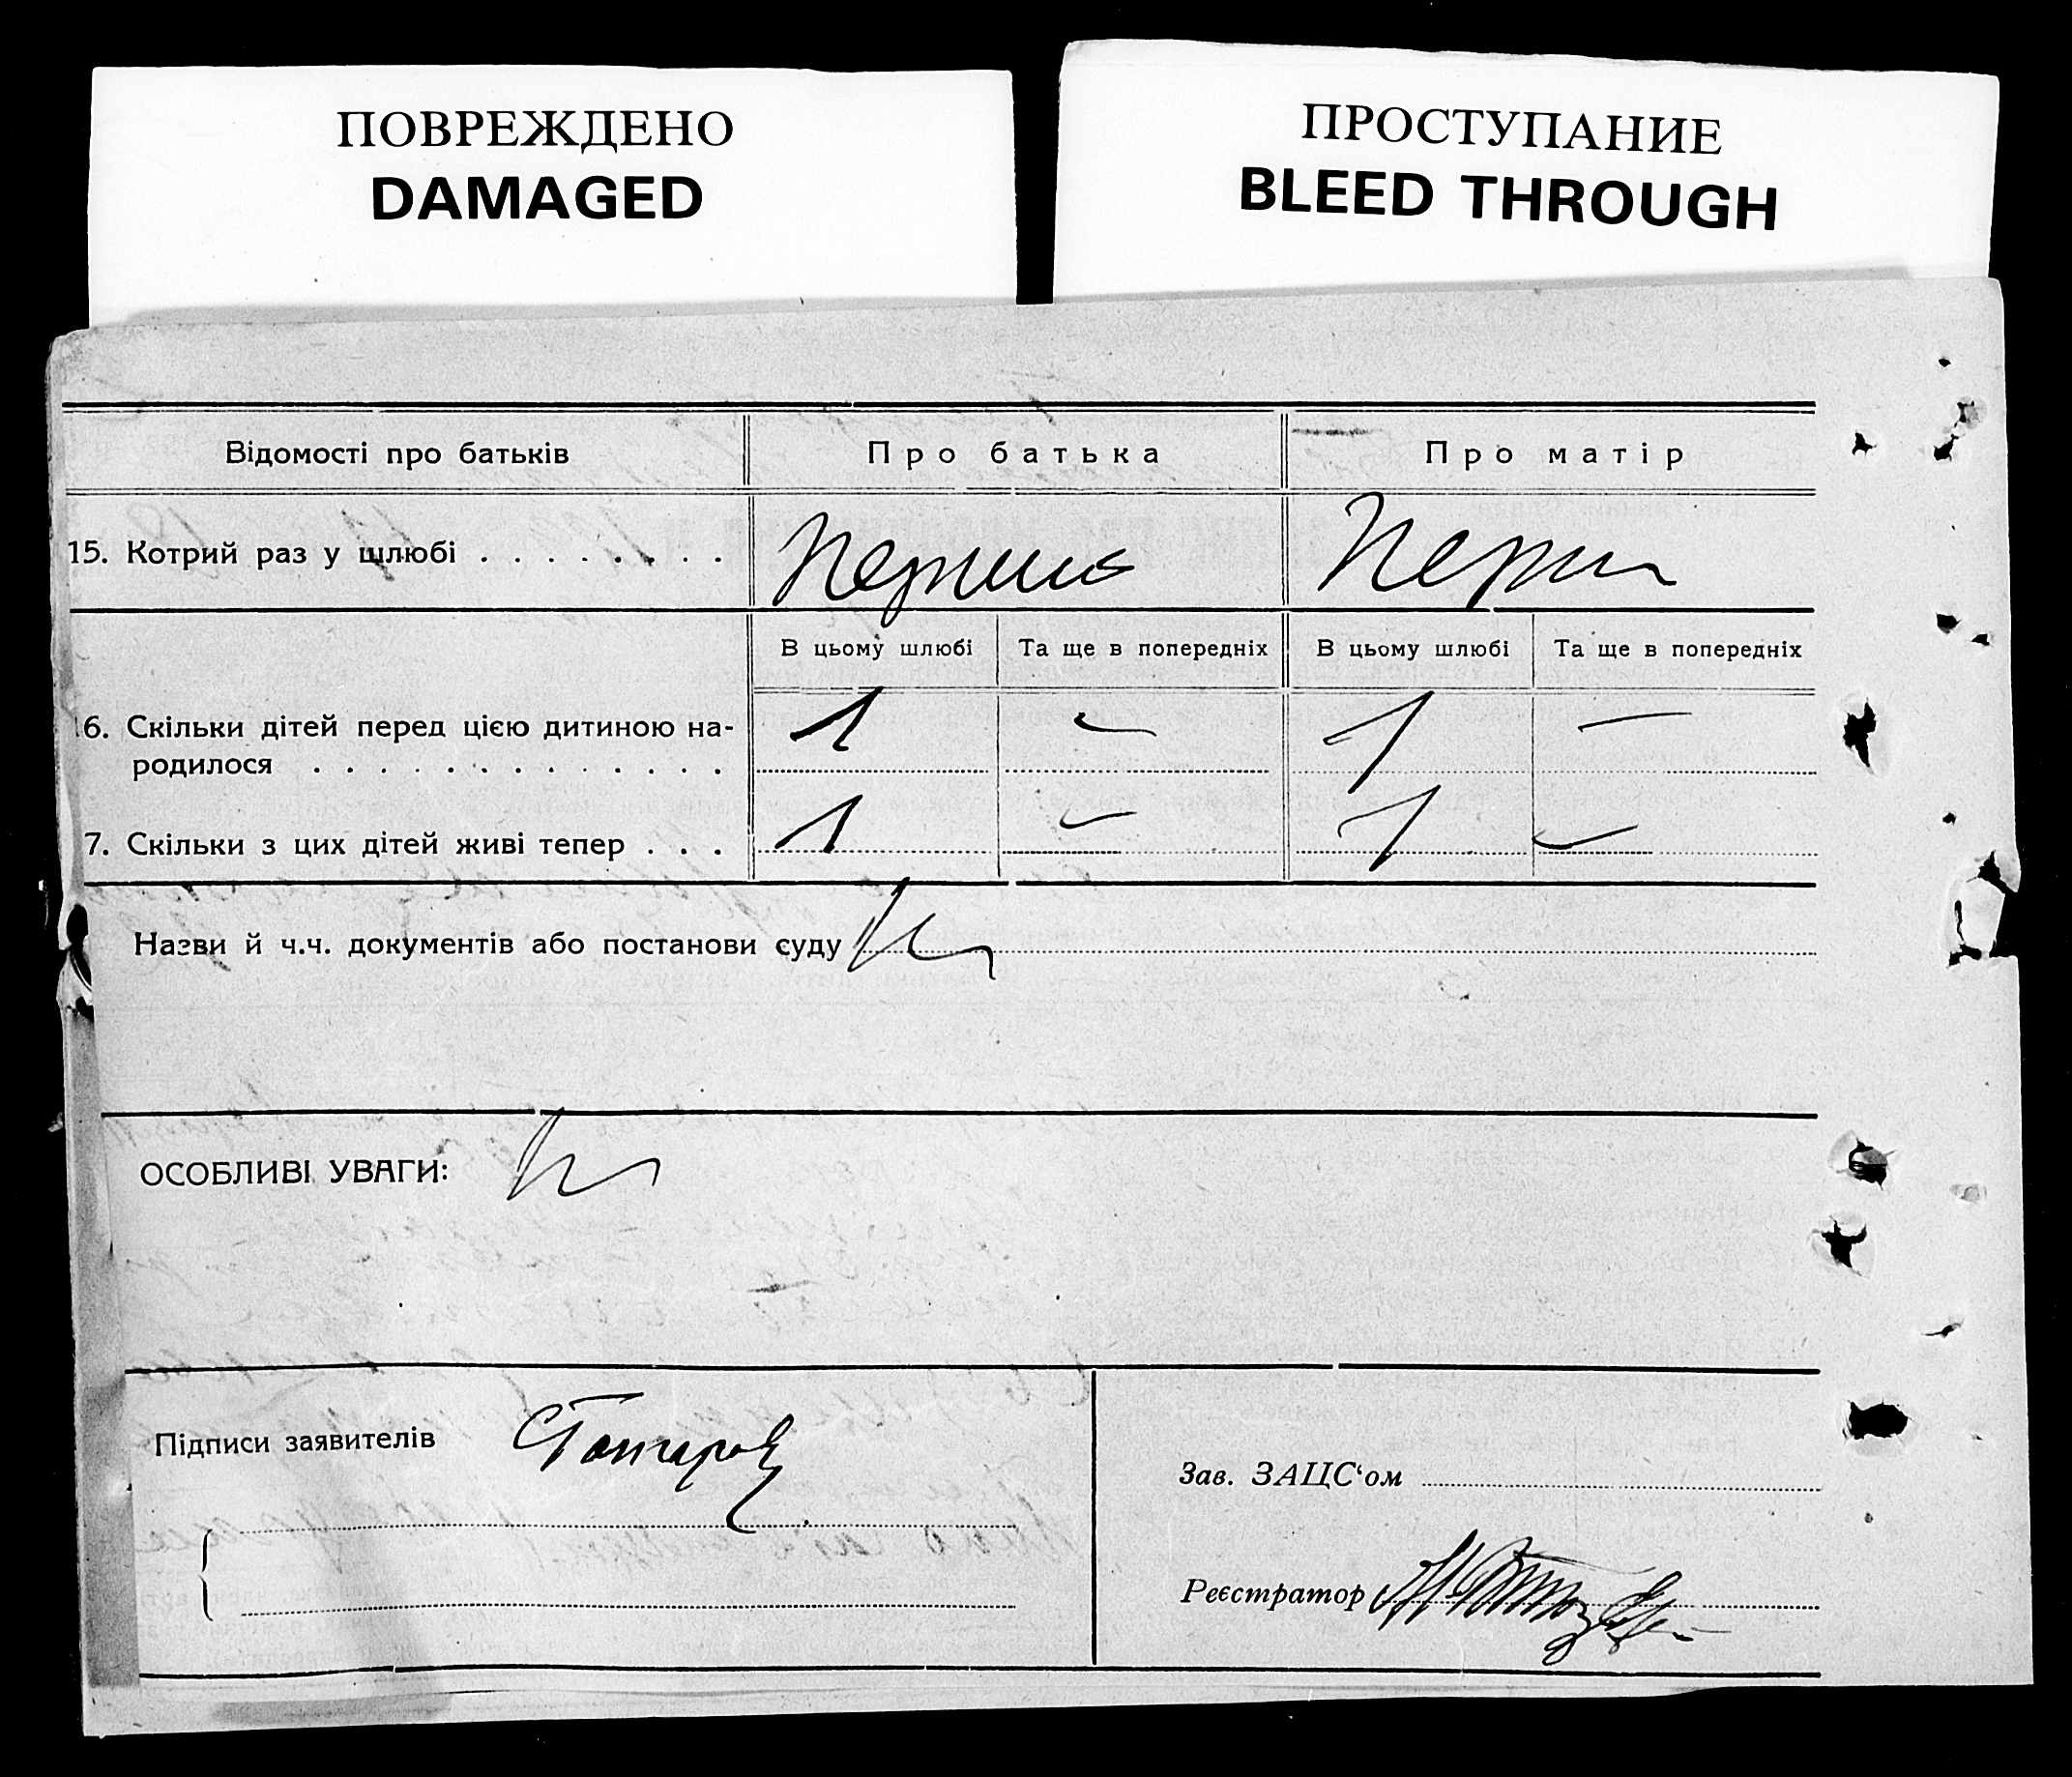 ПОВРЕЖДЕНО
DAMAGED
ПРОСТУПАНИЕ
BLEED THROUGH
Відомості про батьків Про батька Про матір
15. Котрий раз у шлюбі . . . . . . . .
В цьому шлюбі Та ще в попередніх В цьому шлюбі Та ще в попередніх
6. Скільки дітей перед цією дитиною на- 1 — 1 —
родилося . . . . . . . . . . . . .
7. Скільки з цих дітей живі тепер . . . 1 — 1 —
Назви й ч.ч. документів або постанови суду
ОСОБЛИВІ УВАГИ:
Підписи заявителів
Зав. ЗАЦС‘ом
Реєстратор